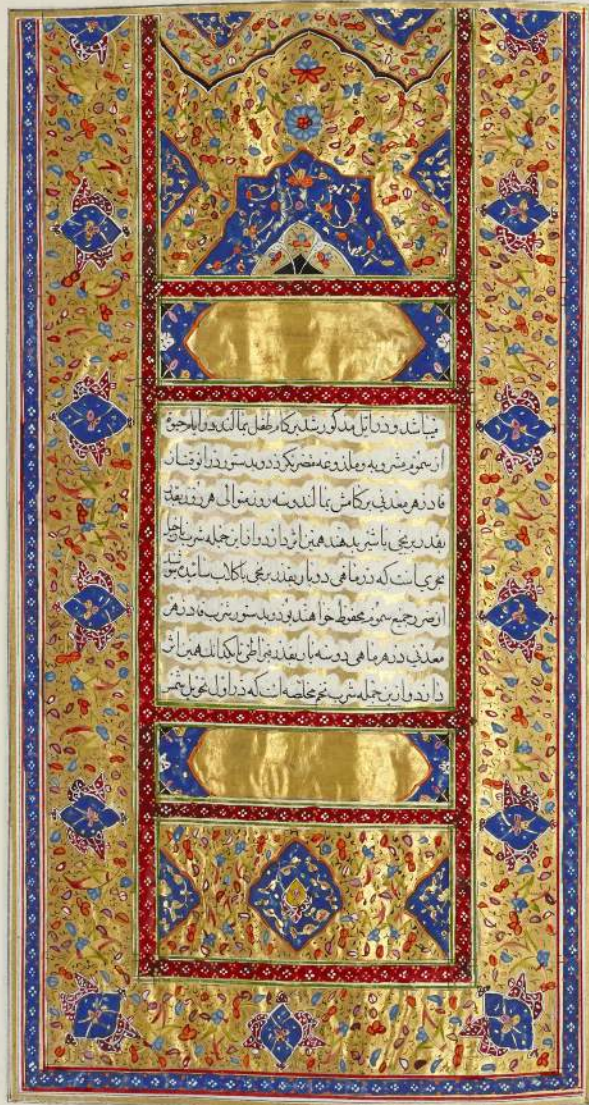 میباشد و در اتل مذکور شد بر کام طفل بمالند و در ایام حیوة
از سموم مشروبه و ملذوعه متضرر نکردد و بدستور در اوقتان
فادزهر معدنی بر کامش بمالند و سه روز متوالی هر روز بقدر
بقدر برنجی باشیر بدهند همین اثر دارد و از این جمله شرب
مجری است که در ماهی دو بار بقدر برنجی با کلاب سائیده بنوشد
از ضرر جمیع سموم محفوظ خواهند بود و بدستور شرب فادزهر
معدنی در هر ماهی دو سه بار بقدر قیراطی تا یکدانک همین اثر
دارد و از این جمله شرب تخم مخلصه است که در اول تحویل شمس